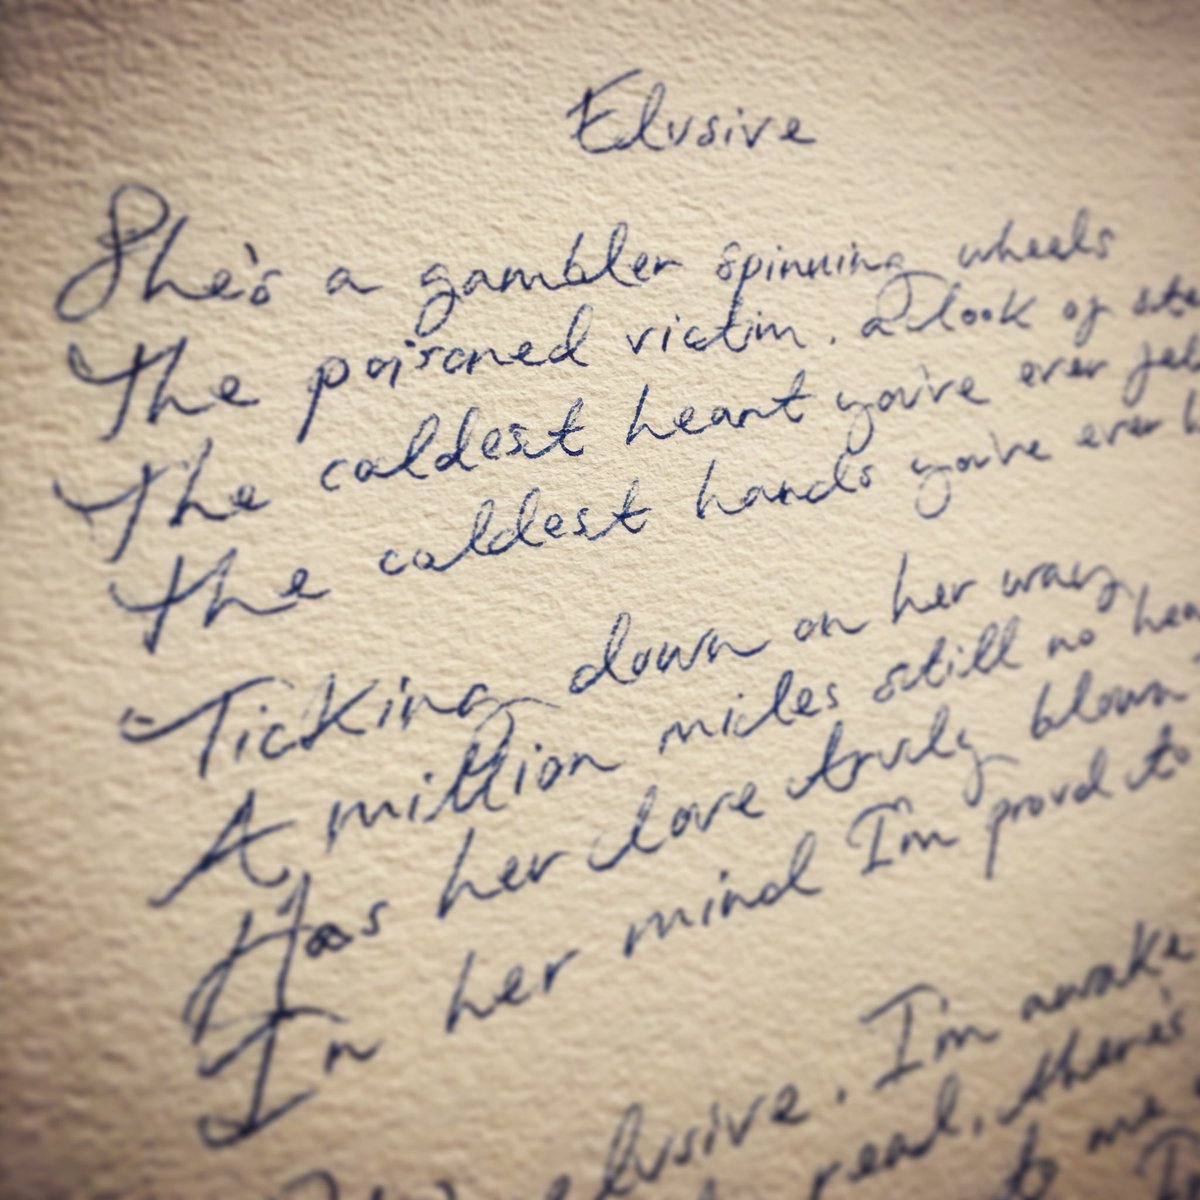 Elusive
She's a gambler spinning wheels
The poisoned victim. a look of
The coldest heart you've ever
The coldest hands you've ever
Ticking down on her way
A million miles still no
Has her love truly blown
In her mind I'm proud to
elusive. I'm awake
real, there's
to me